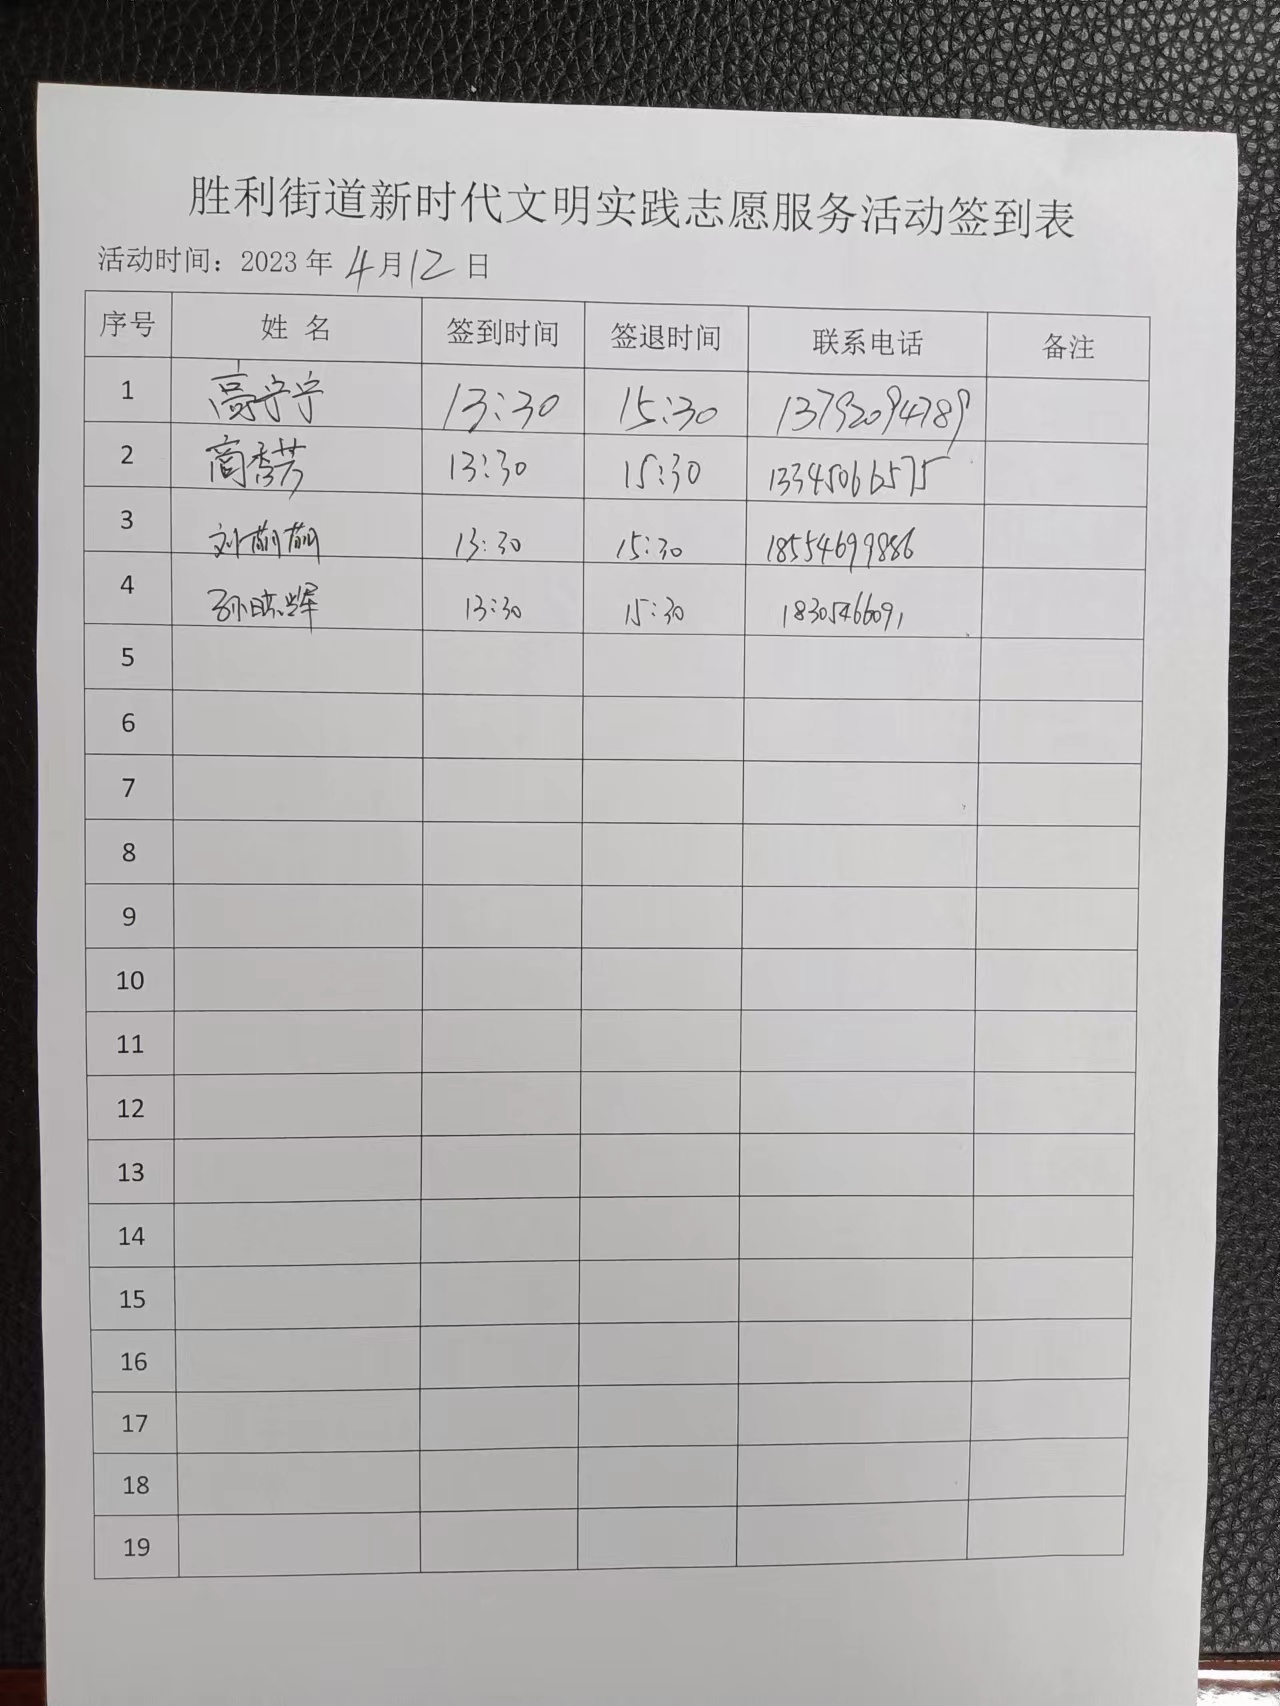 胜利街道新时代文明实践志愿服务活动签到表
活动时间：2023 年 4 月 12 日
序号 姓 名 签到时间 签退时间 联系电话 备注
1 高宁宁 13:30 15:30 13792094789
2 高秀芳 13:30 15:30 13345066575
3 刘萌萌 13:30 15:30 18554699886
4 孙晓辉 13:30 15:30 18305466091
5
6
7
8
9
10
11
12
13
14
15
16
17
18
19